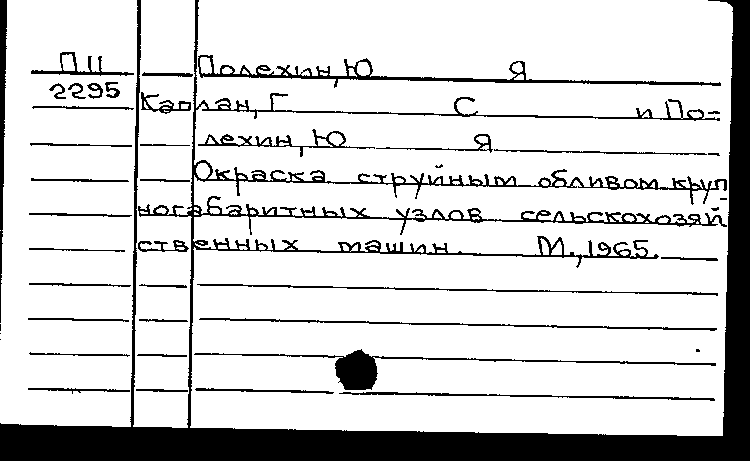 П11 Полехин, Ю Я
2295
Каплан, Г С и По-
лехин, Ю Я
Окраска струйным обливом круп
ногабаритных узлов сельскохозяй
ственных машин. М., 1965.